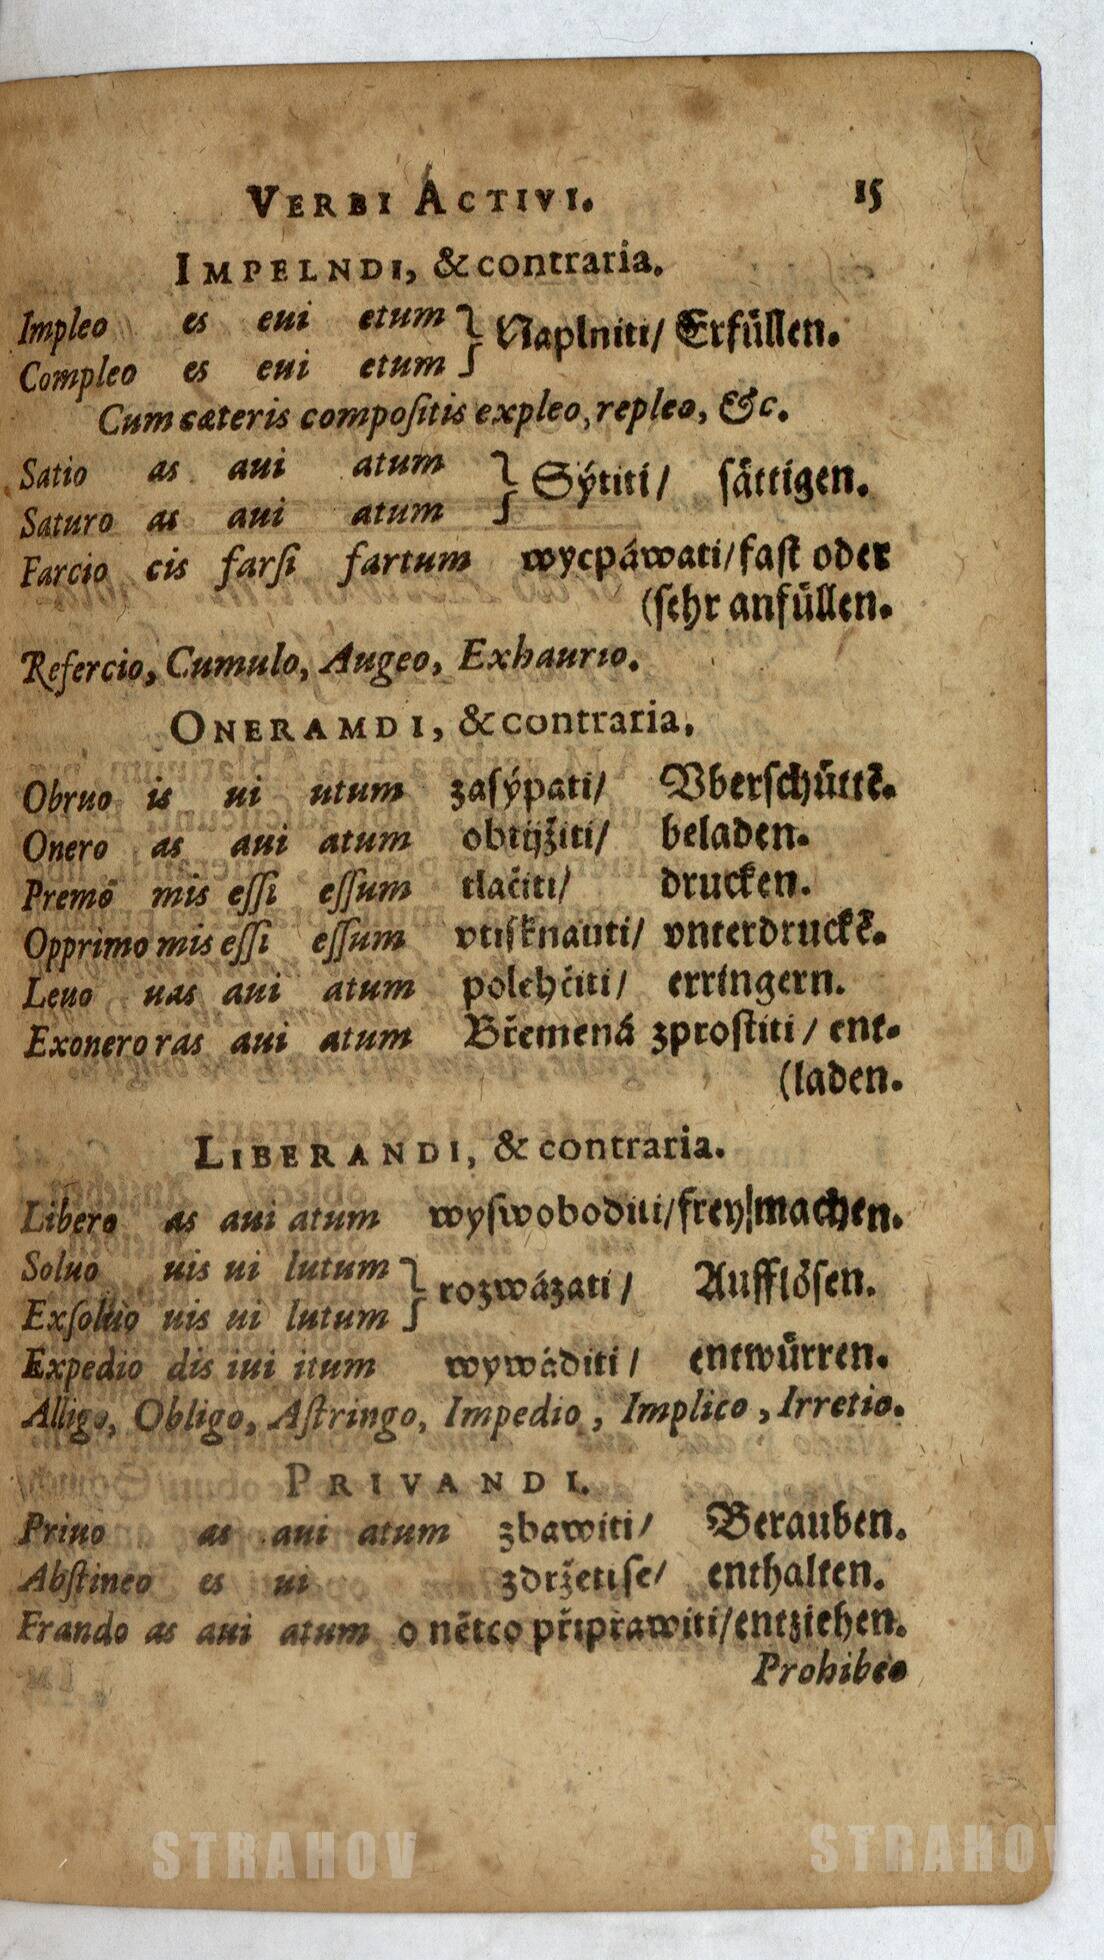 VERBI ACTIVI. 15
IMPELNDI, & contraria.
Impleo es eui etum } Naplniti/ Erfüllen.
Compleo es eui etum
Cum cæteris compoſitis expleo, repleo, &c.
Satio as aui atum } Sýtiti/ ſättigen.
Saturo as aui atum
Farcio cis farſi fartum wycpáwati/ faſt oder
(ſehr anfüllen.
Refercio, Cumulo, Augeo, Exhaurio.
ONERAMDI, & contraria.
Obruo is ui utum zaſýpati/ Vberſchüttē.
Onero as aui atum obtijžiti/ beladen.
Premō mis eſſi eſſum tlačiti/ drucken.
Opprimo mis eſſi eſſum vtiſknauti/ vnterdruckē.
Leuo uas aui atum polehčiti/ erringern.
Exonero ras aui atum Břemená zproſtiti/ ent-
(laden.
LIBERANDI, & contraria.
Libero as aui atum wyſwoboditi/ frey|machen.
Soluo uis ui lutum } rozwázati/ Auffłöſen.
Exſoluo uis ui lutum
Expedio dis iui itum wywáditi/ entwürren.
Alligo, Obligo, Aſtringo, Impedio, Implico, Irretio.
PRIVANDI.
Priuo as aui atum zbawiti/ Berauben.
Abſtineo es ui zdržetiſe/ enthalten.
Frando as aui atum o nětco připrawiti/ entziehen.
Prohibeo
STRAHOV STRAHOV